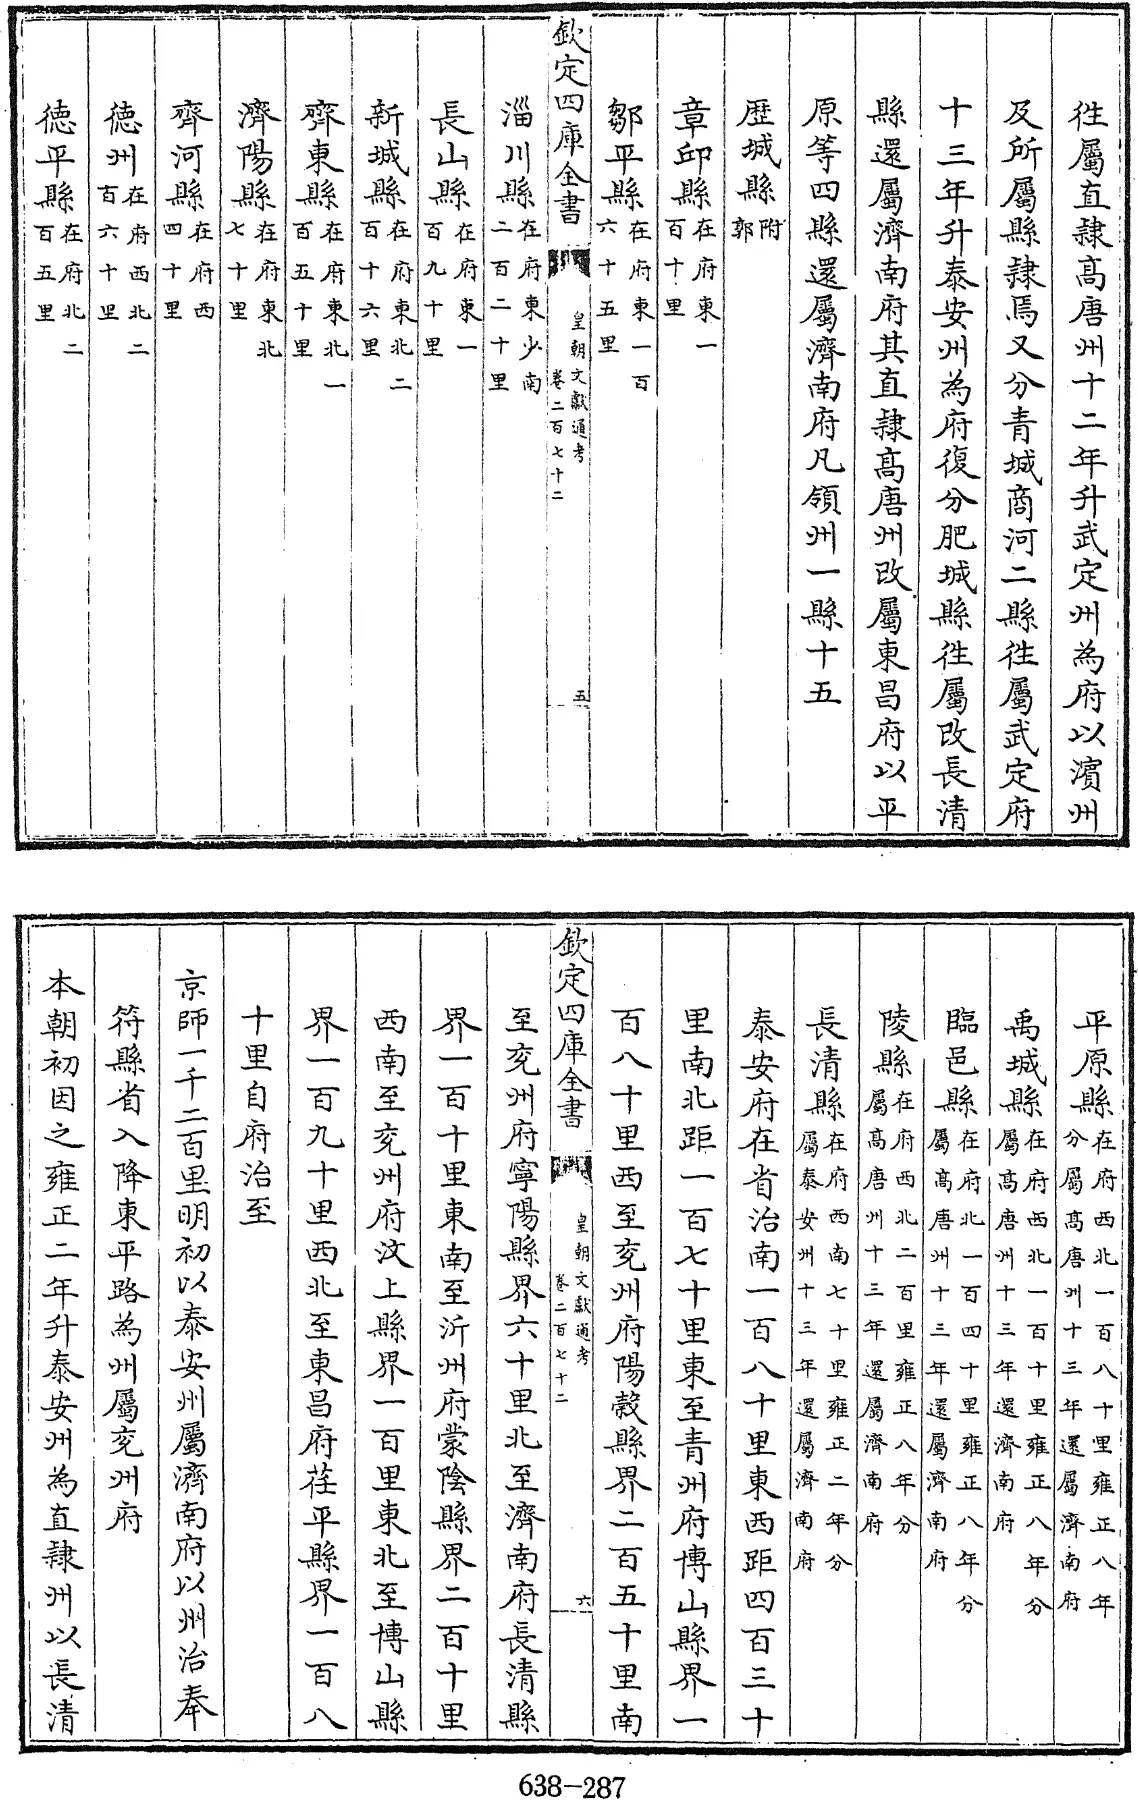 徃屬直隸髙唐州十二年升武定州為府以濱州
及所屬縣隸焉又分青城商河二縣徃屬武定府
十三年升泰安州為府復分肥城縣徃屬改長清
縣還屬濟南府其直隸髙唐州改屬東昌府以平
原等四縣還屬濟南府凡領州一縣十五
歴城縣附郭
章邱縣在府東一百十里
鄒平縣在府東一百六十五里
欽定四庫全書
皇朝文獻通考
卷二百七十二
五
淄川縣在府東少南二百二十里
長山縣在府東一百九十里
新城縣在府東北二百十六里
齊東縣在府東北一百五十里
濟陽縣在府東北七十里
齊河縣在府西四十里
徳州在府西北二百六十里
徳平縣在府北二百五里
平原縣在府西北一百八十里雍正八年分屬髙唐州十三年還屬濟南府
禹城縣在府西北一百十里雍正八年分屬髙唐州十三年還濟南府
臨邑縣在府北一百四十里雍正八年分屬髙唐州十三年還屬濟南府
陵縣在府西北二百里雍正八年分屬髙唐州十三年還屬濟南府
長清縣在府西南七十里雍正二年分屬泰安州十三年還屬濟南府
泰安府在省治南一百八十里東西距四百三十
里南北距一百七十里東至青州府博山縣界一
百八十里西至兖州府陽榖縣界二百五十里南
欽定四庫全書
皇朝文獻通考
卷二百七十二
六
至兖州府寧陽縣界六十里北至濟南府長清縣
界一百十里東南至沂州府蒙陰縣界二百十里
西南至兖州府汶上縣界一百里東北至博山縣
界一百九十里西北至東昌府茌平縣界一百八
十里自府治至
京師一千二百里明初以泰安州屬濟南府以州治奉
符縣省入降東平路為州屬兖州府
本朝初因之雍正二年升泰安州為直隸州以長清
638-287